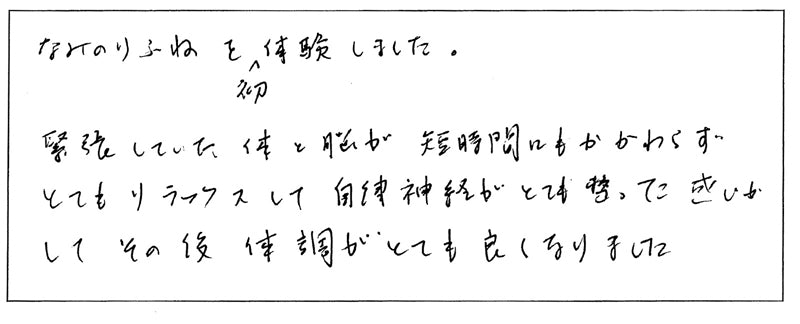 なみのりふねを初体験しました。
緊張していた体と脳が短時間にもかかわらず
とてもリラックスして自律神経がとても整った感じが
してその後体調がとても良くなりました